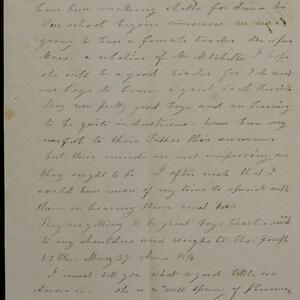 have been making cloths for Anna &c
Our school begins tomorrow we are
going to have a female teacher She is from
Mass - a relative of Mr Mitchells I hope
she will be a good teacher for I do want
our boys to learn a good deal this
They are pretty good boys and are learning
to be quite industrious - have been very
useful to their Father this summer
but their minds are not improving as
they ought to be. I often wish that I
could have more of my time to spend with
them in hearing them read &c
They are getting to be great boys Charlie
to my shoulders and weighs 61 lbs. Joseph
52 lbs. Mary 37. Anna 18¼.
I must tell you what a good little one
Anna is - she is a "well spring of pleasure,